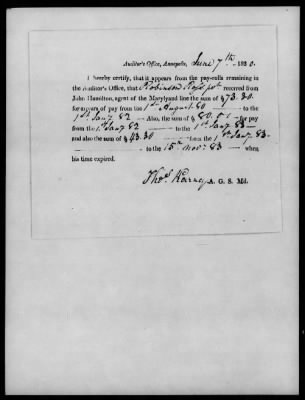 Auditor's Office, Annapolis, June 7th 1820.
I hereby certify, that it appears from the pay-rolls remaining in
the Auditor's Office, that Robinson Ross pt received from
John Hamilton, agent of the Maryland line the sum of $73.30.
for arrears of pay from the 1st August 80 — to the
1st Jany 82 — Also, the sum of $80.0 —for pay
from the 1st Jany 82 — to the 1st Jany 83—
and also the sum of $43.30 — from the 1st Jany 83—
— to the 15th Novr 83 — when
his time expired.
Thos Karney A. G. S. Md.